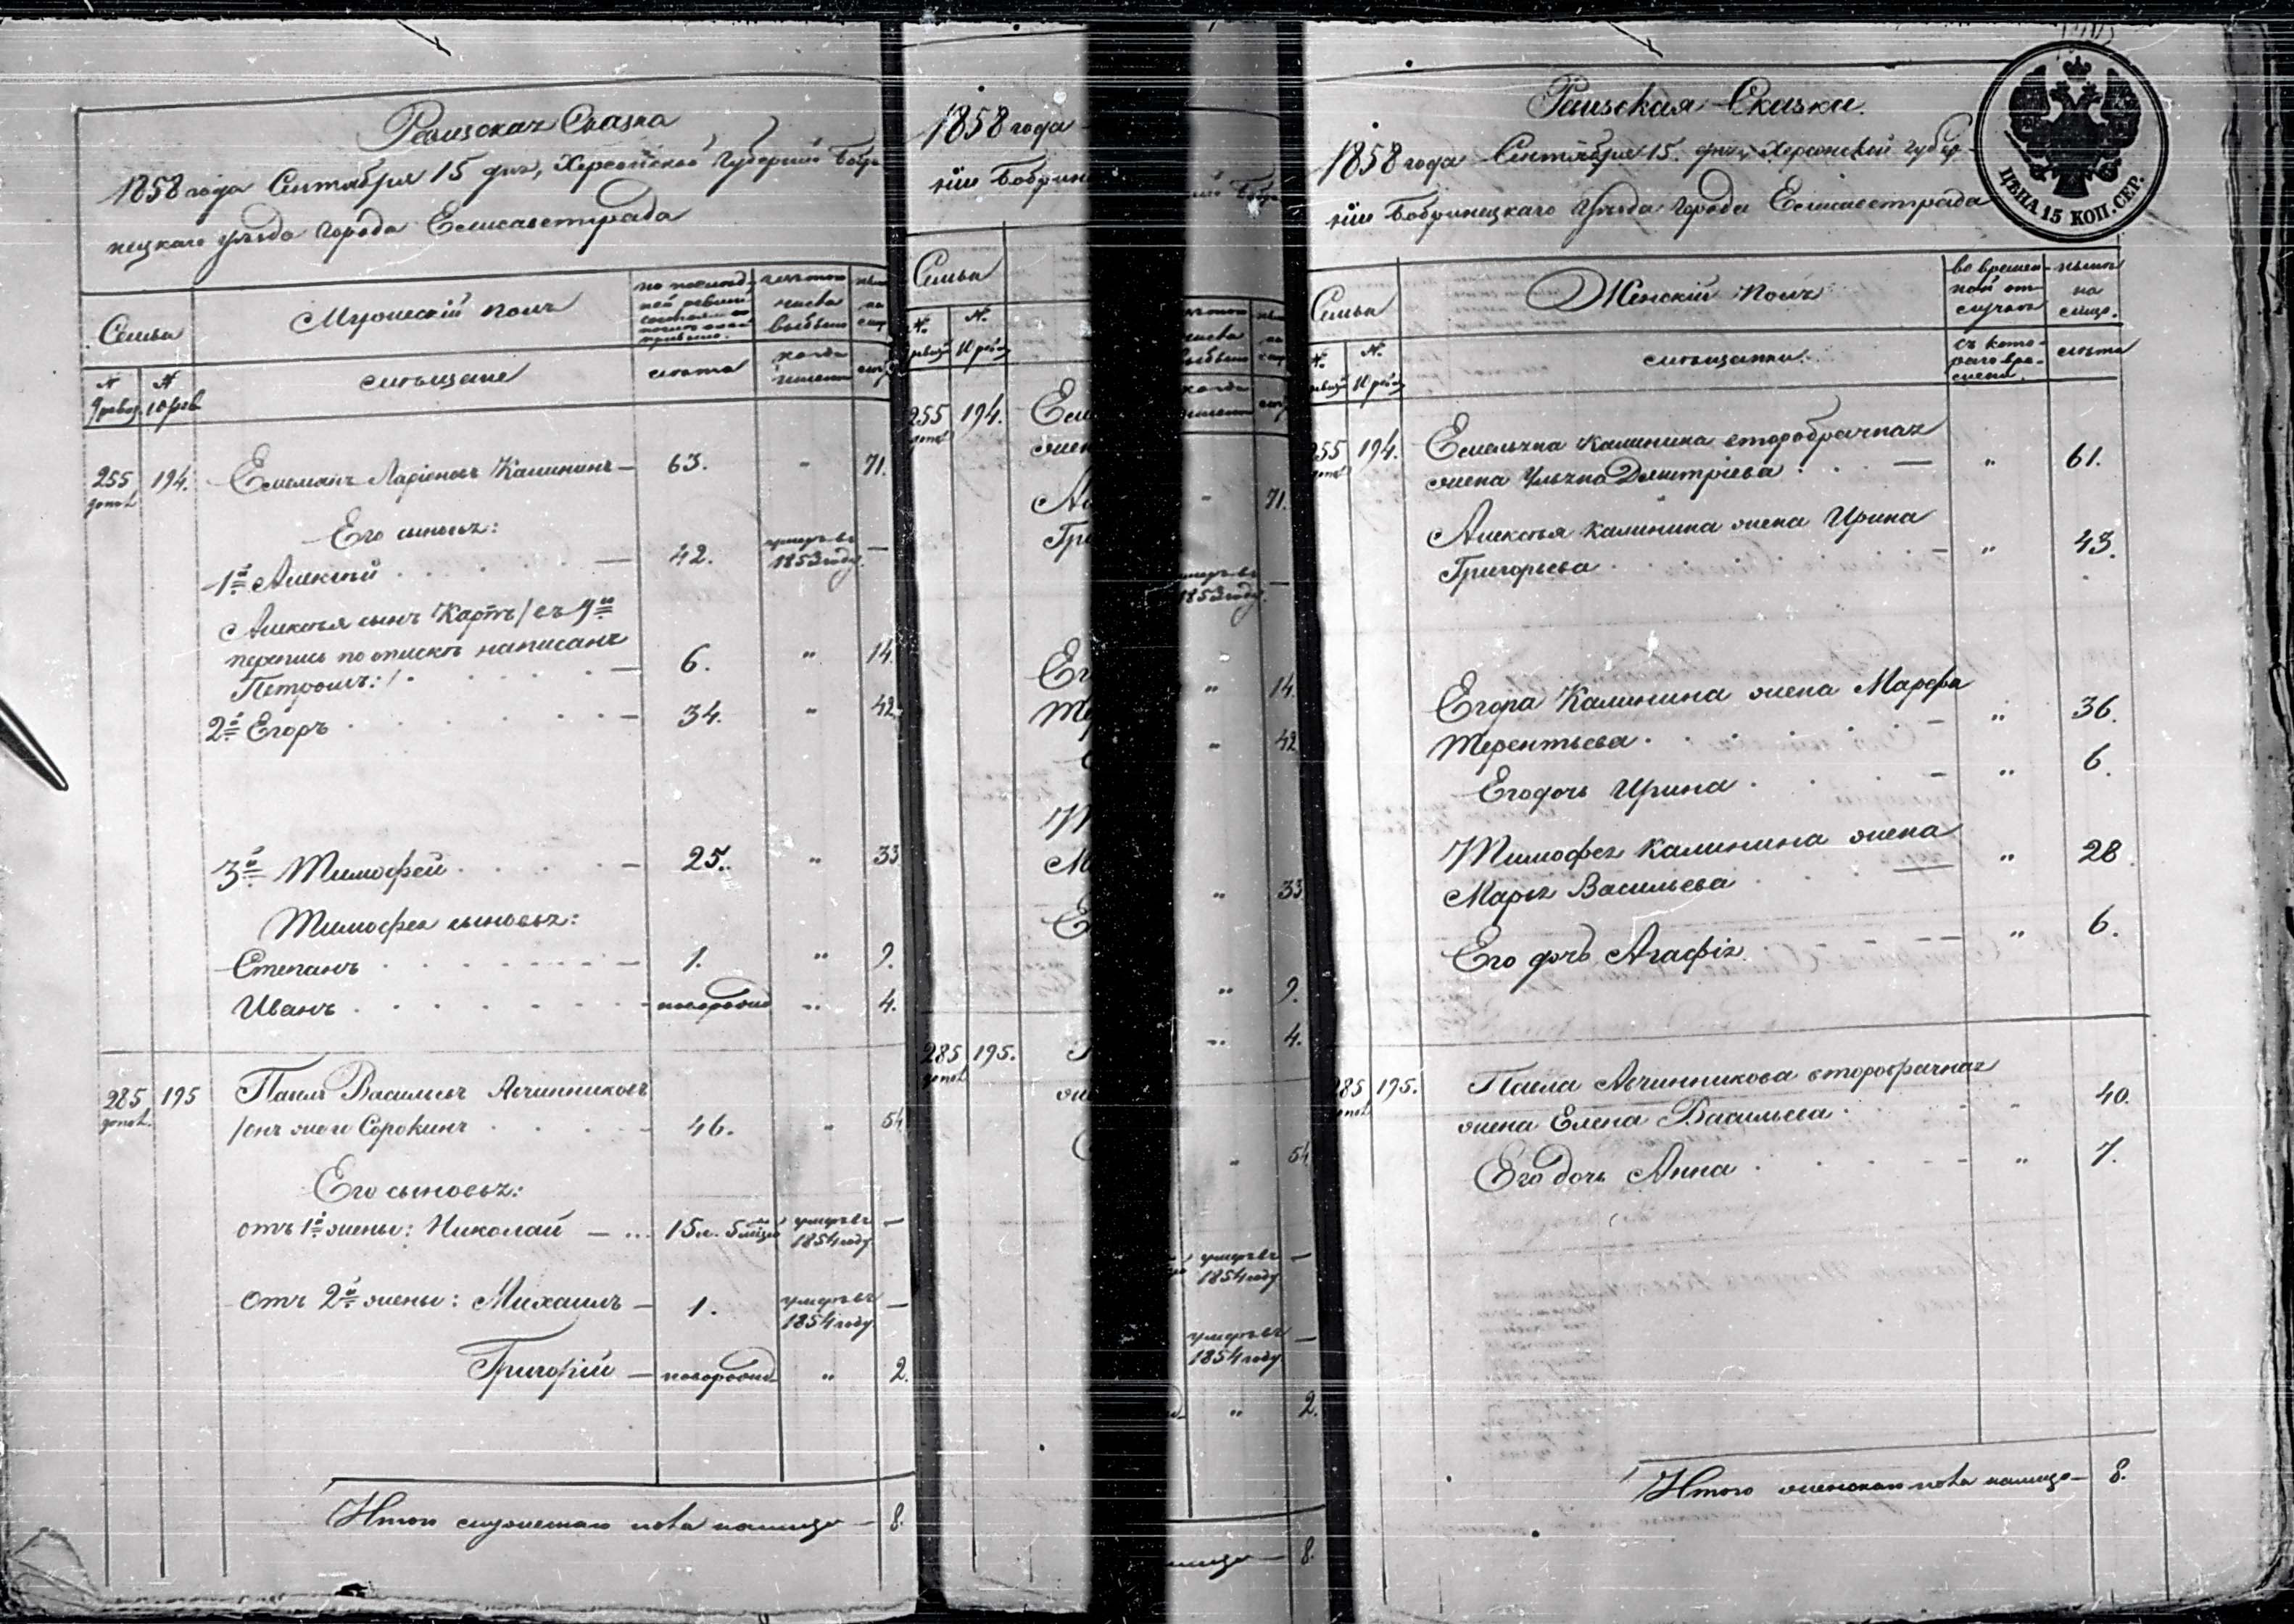 Ревизская Сказка
1858 года Сентября 15 дня, Херсонской Губернии Бобри
нецкаго уезда Города Елисаветграда
Семья
Мужескій полъ
по послед
ней ревизіи
состояло
изъ того
числа
выбыло
ныне
на
лицо
мещане
лета
когда
именно
лета
№
9 ревиз.
№
10 рев
255
194.
Емельянъ Ларіоновъ Калининъ — 63. " 71.
Его сыновья:
1й Алексей — 42. умеръ въ 1853 году —
Алексея сынъ Карпъ /въ 9ю
перепись по описке написанъ
Петромъ:/ — 6. " 14.
2й Егоръ — 34. " 42.
3й Тимофей — 25. " 33
Тимофея сыновья:
Степанъ — 1. " 9.
Иванъ — новорожд " 4.
285
195
Павелъ Васильевъ Овчинниковъ
/онъ же и Сорокинъ 46. " 54
Его сыновья:
отъ 1й жены: Николай — 15 л. 5 месяц умеръ въ 1854 году —
отъ 2й жены: Михаилъ — 1. умеръ въ 1854 году —
Григорій — новорожд " 2.
Итого мужескаго пола налицо — 8.
1858 года
ніи Бобрин
Семья
№
№
10 ревиз
255
194.
285
195.
71.
1853 году.
14.
42
33
9.
4.
54
умеръ въ
1854 году
умеръ въ
1854 году
2.
8.
Ревизская Сказка.
1858 года Сентября 15. дня, Херсонской Губер-
ніи Бобринецкаго Уезда Города Елисаветграда
ЦѢНА 15 КОП. СЕР.
Семья
Женскій полъ
во времен
ной от
лучке
ныне
на
лицо.
мещанки.
съ кото-
раго вре-
мени.
лета
№
№
10 ревиз
255
194.
Емельяна Калинина второбрачная
жена Ульяна Дмитріева — " 61.
Алексея Калинина жена Ирина
Григорьева — " 43.
Егора Калинина жена Марфа
Терентьева — " 36.
Его дочь Ирина — " 6.
Тимофея Калинина жена
Марья Васильева — " 28.
Его дочь Агафія — " 6.
285
195.
Павла Овчинникова второбрачная
жена Елена Васильева — 40.
Его дочь Анна — " 7.
Итого женскаго пола налицо — 8.